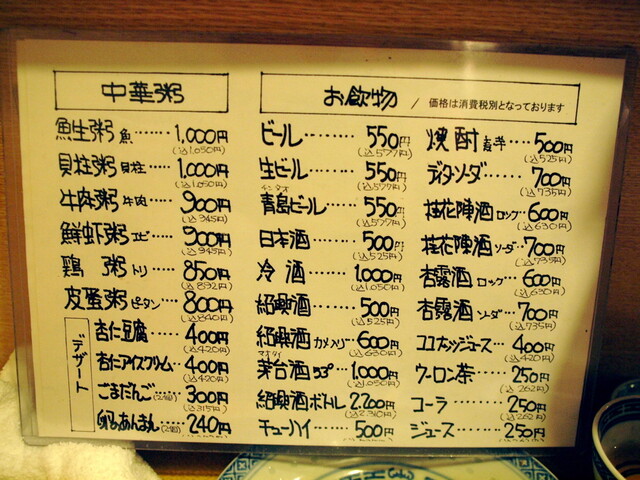 中華粥
魚生粥 魚……1,000円
(込1,050円)
貝柱粥 貝柱……1,000円
(込1,050円)
牛肉粥 牛肉……900円
(込945円)
鮮虾粥 エビ……900円
(込945円)
鶏 粥 トリ……850円
(込892円)
皮蛋粥 ピータン…800円
(込840円)
デザート
杏仁豆腐……400円
(込420円)
杏仁アイスクリーム…400円
(込420円)
ごまだんご(2個)…300円
(込315円)
卵あんまん(2個)…240円
お飲物 / 価格は消費税別となっております
ビール……550円
(込577円)
生ビール……550円
(込577円)
チンタオ
青島ビール……550円
(込577円)
日本酒……500円
(込525円)
冷酒……1,000円
(込1,050円)
紹興酒……500円
(込525円)
紹興酒 カメ入り…600円
(込630円)
マオタイ
茅台酒…1,000円
(込1,050円)
紹興酒ボトル…2,200円
(込2,310円)
チューハイ……500円
焼酎 麦 芋……500円
(込525円)
ディタソーダ……700円
(込735円)
桂花陳酒 ロック…600円
(込630円)
桂花陳酒 ソーダ…700円
(込735円)
杏露酒 ロック…600円
(込630円)
杏露酒 ソーダ…700円
(込735円)
ココナッツジュース…400円
(込420円)
ウーロン茶……250円
(込262円)
コーラ……250円
(込262円)
ジュース……250円